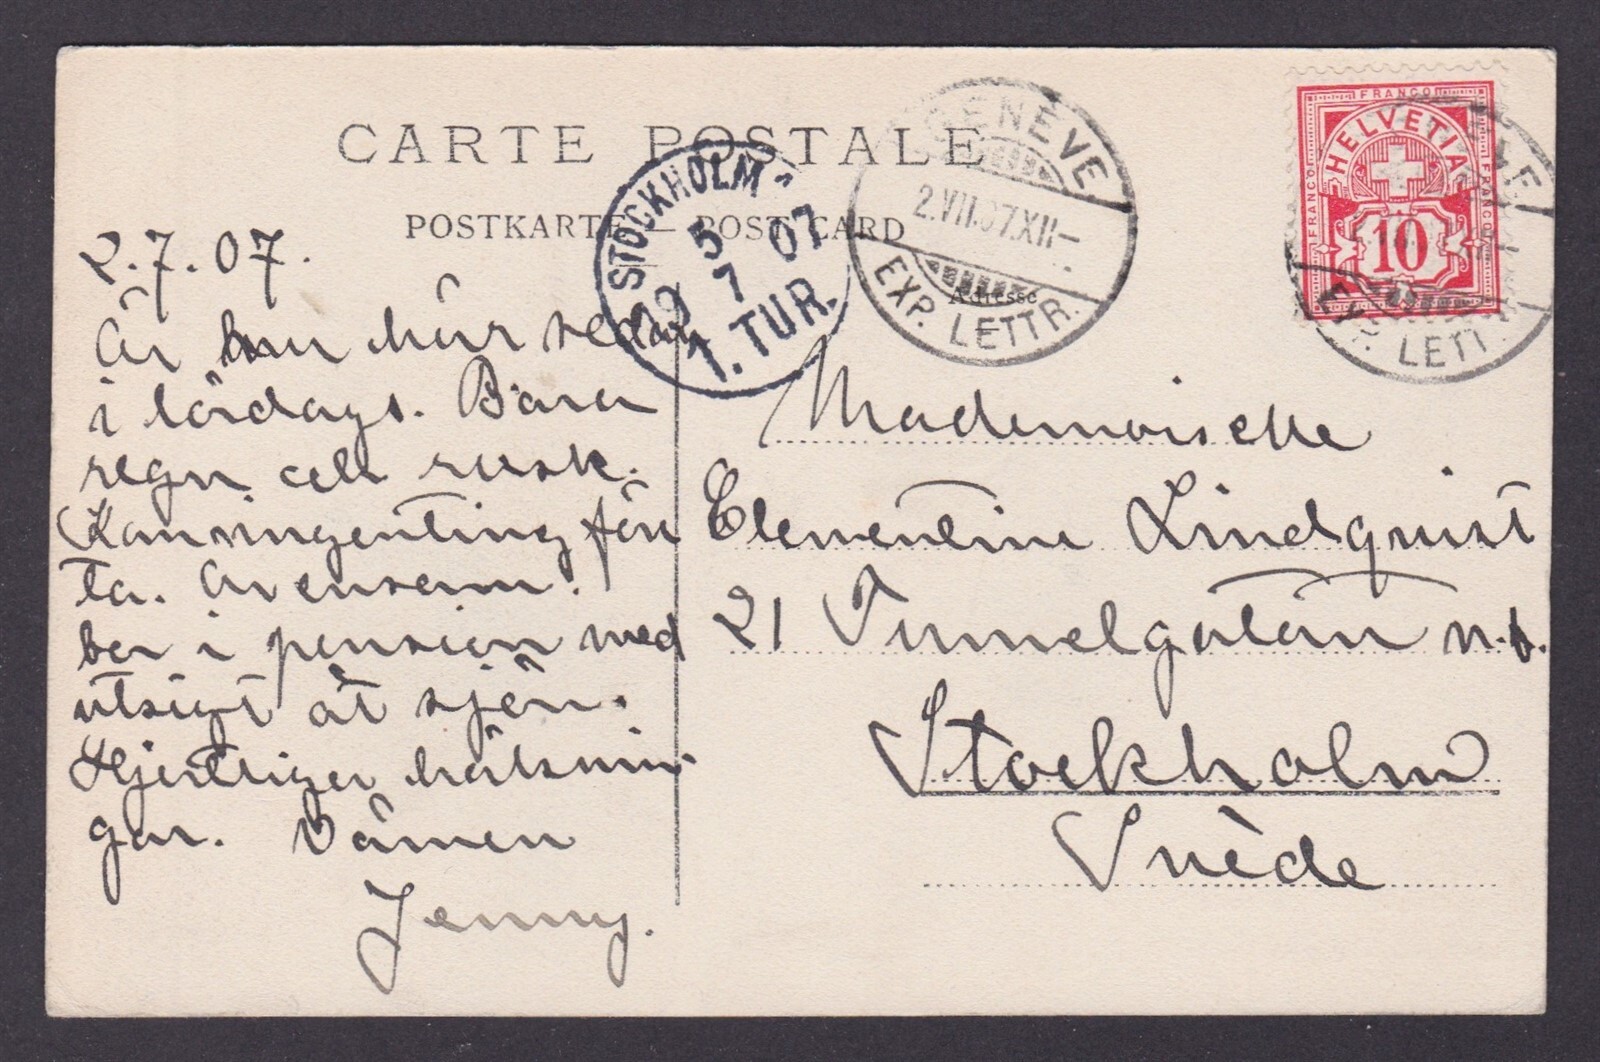 CARTE POSTALE
POSTKARTE — POST CARD
Adresse
STOCKHOLM
5 7 07
1. TUR.
GENÈVE
2.VII.07.XII–
EXP. LETTR.
FRANCO
FRANCO
FRANCO
HELVETIA
10
EXP. LETTR.
2.7.07.
Är här sedan
i lördags. Bara
regn och rusk.
Kan ingenting före
ta. Är ensam.
bor i pension med
utsigt åt sjön.
Hjertliga hälsnin-
gar. Vännen
Jenny.
Mademoiselle
Clementine Lindquist
21 Tunnelgatan n.b.
Stockholm
Suède